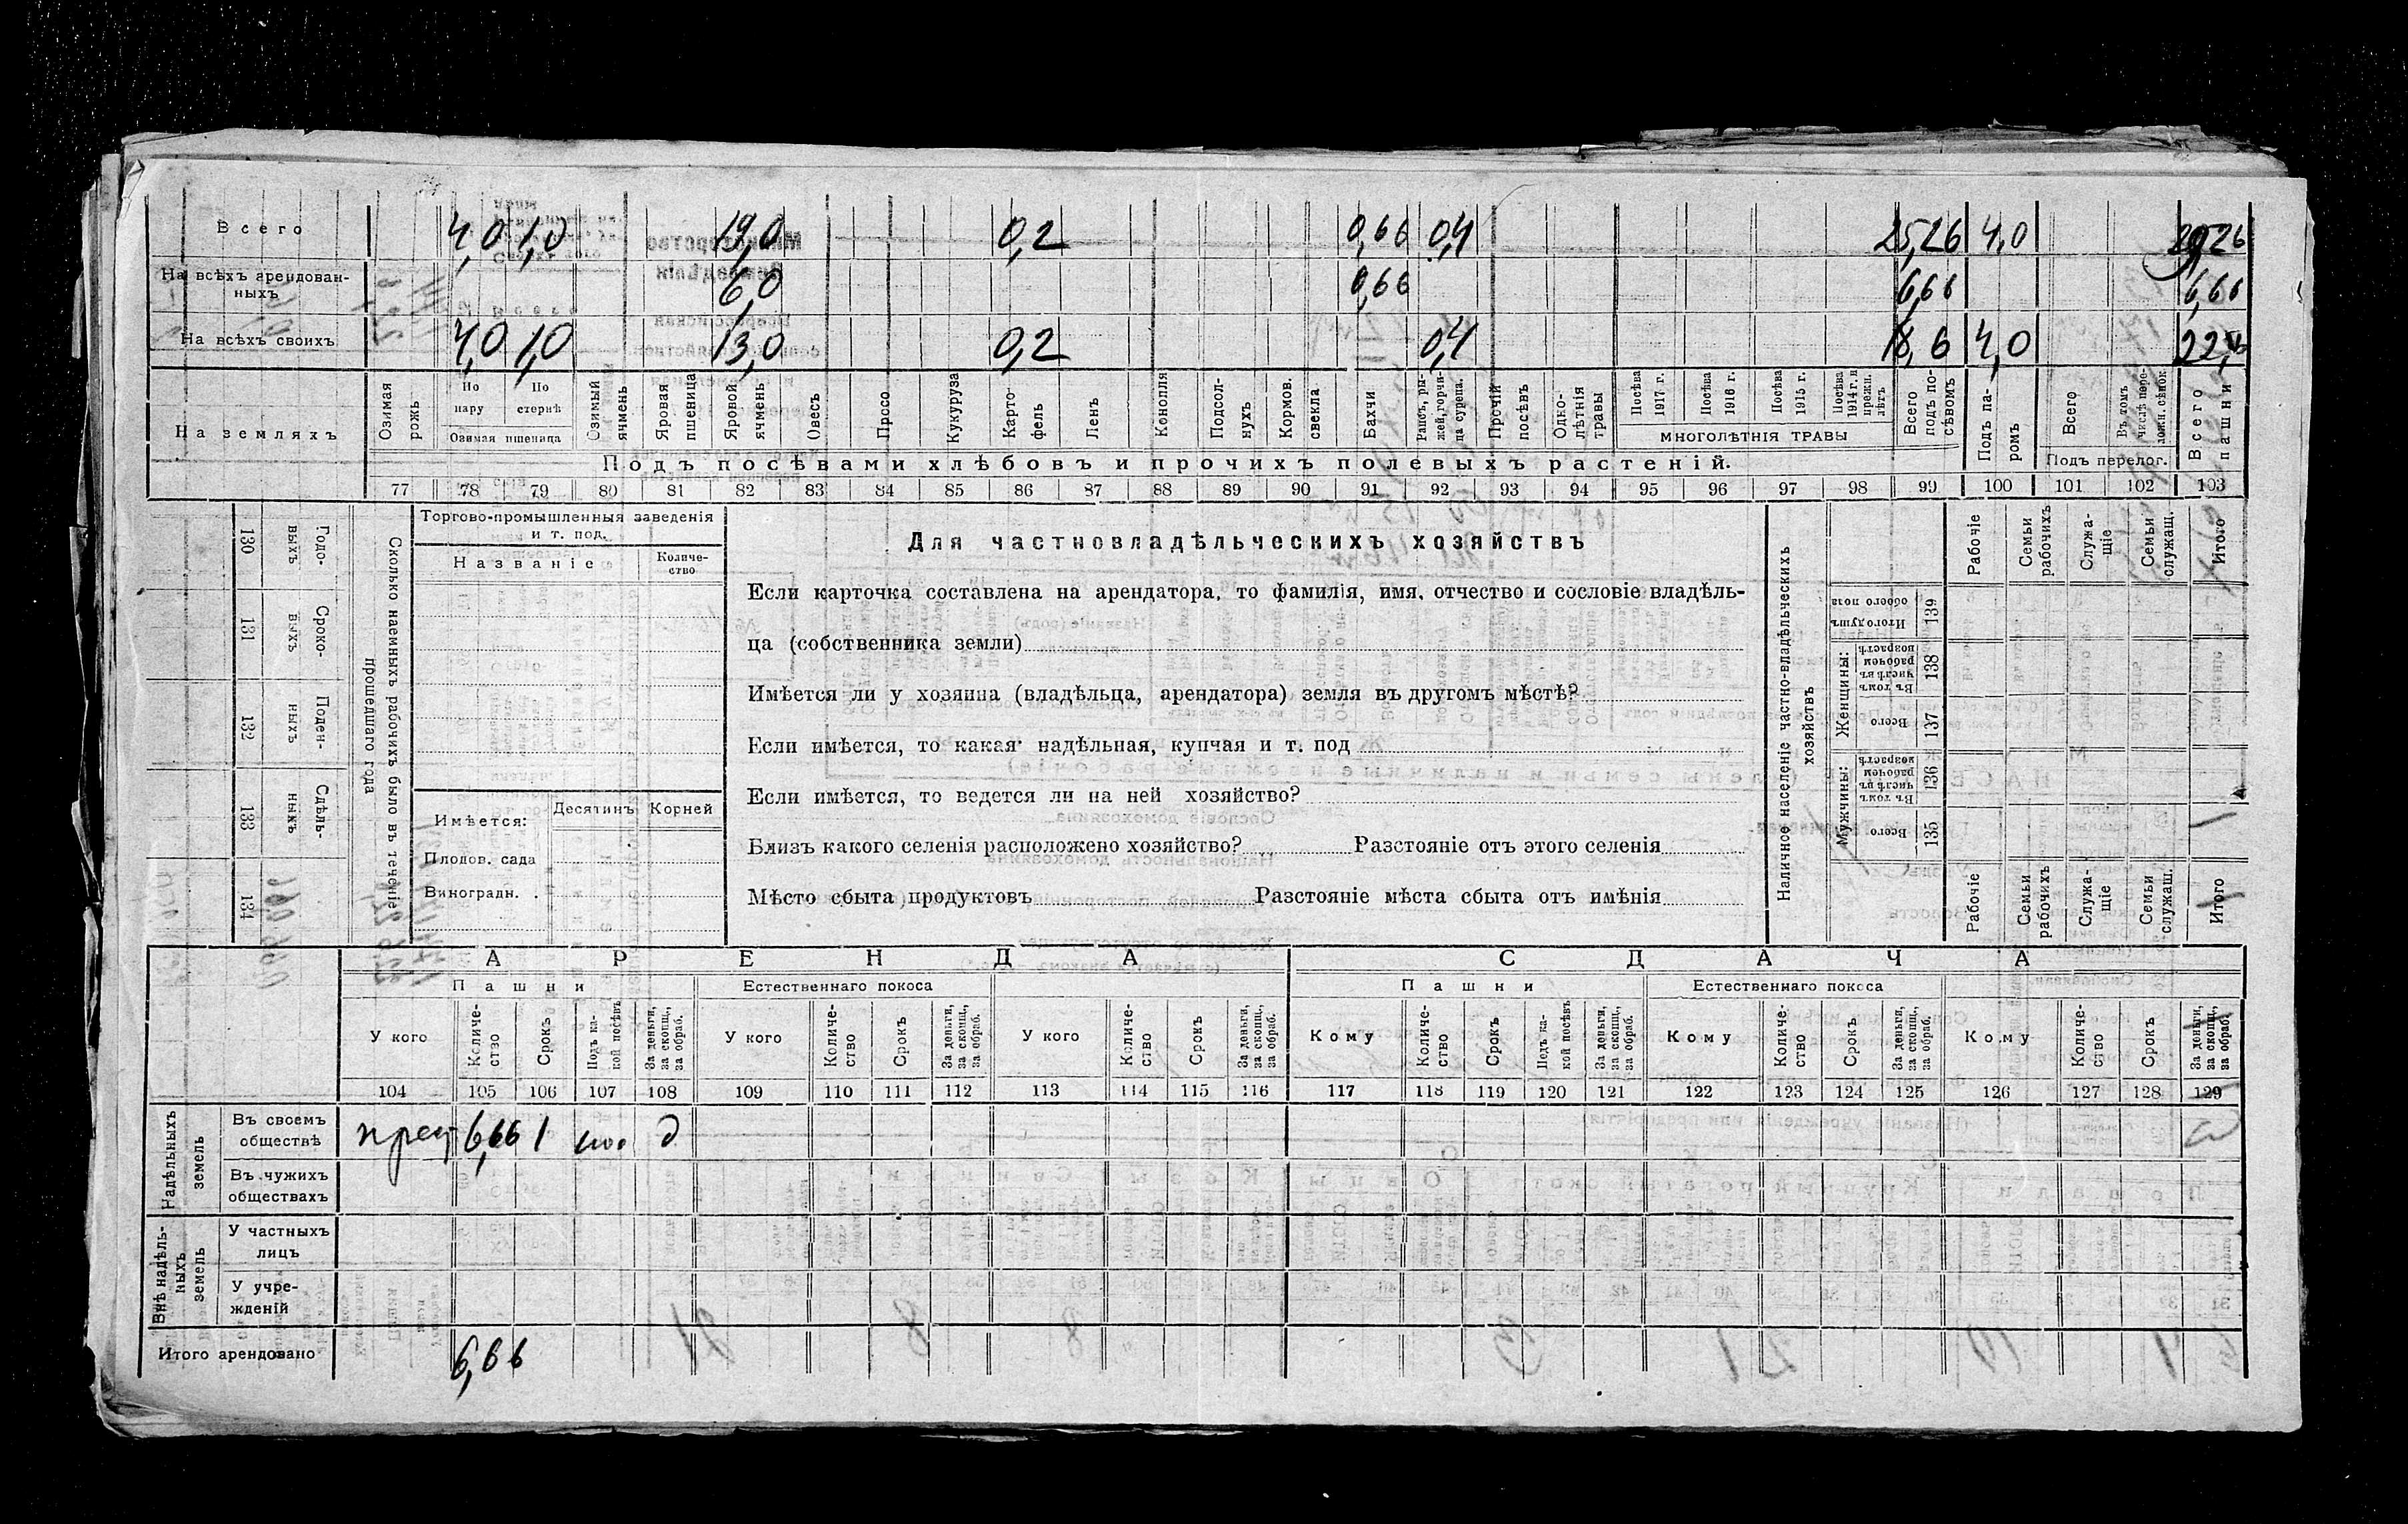 Всего 4,0 1,0 19,0 0,2 0,66 0,4 25,26 4,0 29,26
На всѣхъ арендован-
ныхъ 6,0 0,66 6,66 6,66
На всѣхъ своихъ 4,0 1,0 13,0 0,2 0,4 18,6 4,0
На земляхъ
Озимая рожь
По пару
По стернѣ
Озимая пшеница
Озимый ячмень
Яровая пшеница
Яровой ячмень
Овесъ
Просо
Кукуруза
Карто-
фель
Ленъ
Конопля
Подсол-
нухъ
Кормов.
свекла
Бахчи
Рапсъ, ры-
жей, горчи-
ца сурепа.
Прочій посѣвъ
Одно-
лѣтнія
травы
Посѣва 1917 г.
Посѣва 1916 г.
Посѣва 1915 г.
Посѣва 1914 г. и прежн. лѣтъ
МНОГОЛѢТНІЯ ТРАВЫ
Всего подъ по-
сѣвомъ
Подъ па-
ромъ
Всего
Въ томъ числѣ пере-
ложн. сѣнок.
Подъ перелог.
Всего пашни
Подъ посѣвами хлѣбовъ и прочихъ полевыхъ растеній.
77 78 79 80 81 82 83 84 85 86 87 88 89 90 91 92 93 94 95 96 97 98 99 100 101 102 103
130 Годо-
выхъ
131 Сроко-
выхъ
132 Поден-
ныхъ
133 Сдѣль-
ныхъ
134
Сколько наемныхъ рабочихъ было въ теченіе
прошедшаго года
Торгово-промышленныя заведенія
и т. под.
Названіе
Количе-
ство
Имѣется:
Десятинъ
Корней
Плодов. сада
Виноградн.
Для частновладѣльческихъ хозяйствъ
Если карточка составлена на арендатора, то фамилія, имя, отчество и сословіе владѣль-
ца (собственника земли)
Имѣется ли у хозяина (владѣльца, арендатора) земля въ другомъ мѣстѣ?
Если имѣется, то какая: надѣльная, купчая и т. под
Если имѣется, то ведется ли на ней хозяйство?
Близъ какого селенія расположено хозяйство? Разстояніе отъ этого селенія
Мѣсто сбыта продуктовъ Разстояніе мѣста сбыта отъ имѣнія
Наличное населеніе частно-владѣльческихъ
хозяйствъ
Рабочіе
Семьи рабочихъ
Служа-
щіе
Семьи служащ.
Итого
Итого душъ обоего пола 139
Женщины:
Въ томъ числѣ въ рабочемъ возрастѣ 138
Всего 137
Мужчины:
Въ томъ числѣ въ рабочемъ возрастѣ 136
Всего 135
Рабочіе
Семьи рабочихъ
Служа-
щіе
Семьи служащ.
Итого
АРЕНДА
СДАЧА
Пашни
Естественнаго покоса
Пашни
Естественнаго покоса
У кого
Количе-
ство
Срокъ
Подъ ка-
кой посѣвъ
За деньги, за скопщ., за обраб.
У кого
Количе-
ство
Срокъ
За деньги, за скопщ., за обраб.
У кого
Количе-
ство
Срокъ
За деньги, за скопщ., за обраб.
Кому
Количе-
ство
Срокъ
Подъ ка-
кой посѣвъ
За деньги, за скопщ., за обраб.
Кому
Количе-
ство
Срокъ
За деньги, за скопщ., за обраб.
Кому
Количе-
ство
Срокъ
За деньги, за скопщ., за обраб.
104 105 106 107 108 109 110 111 112 113 114 115 116 117 118 119 120 121 122 123 124 125 126 127 128 129
Надѣльныхъ
земель
Въ своемъ
обществѣ
крест 6,66 1 д
Въ чужихъ
обществахъ
Внѣ надѣль-
ныхъ
земель
У частныхъ
лицъ
У учре-
жденій
Итого арендовано 6,66